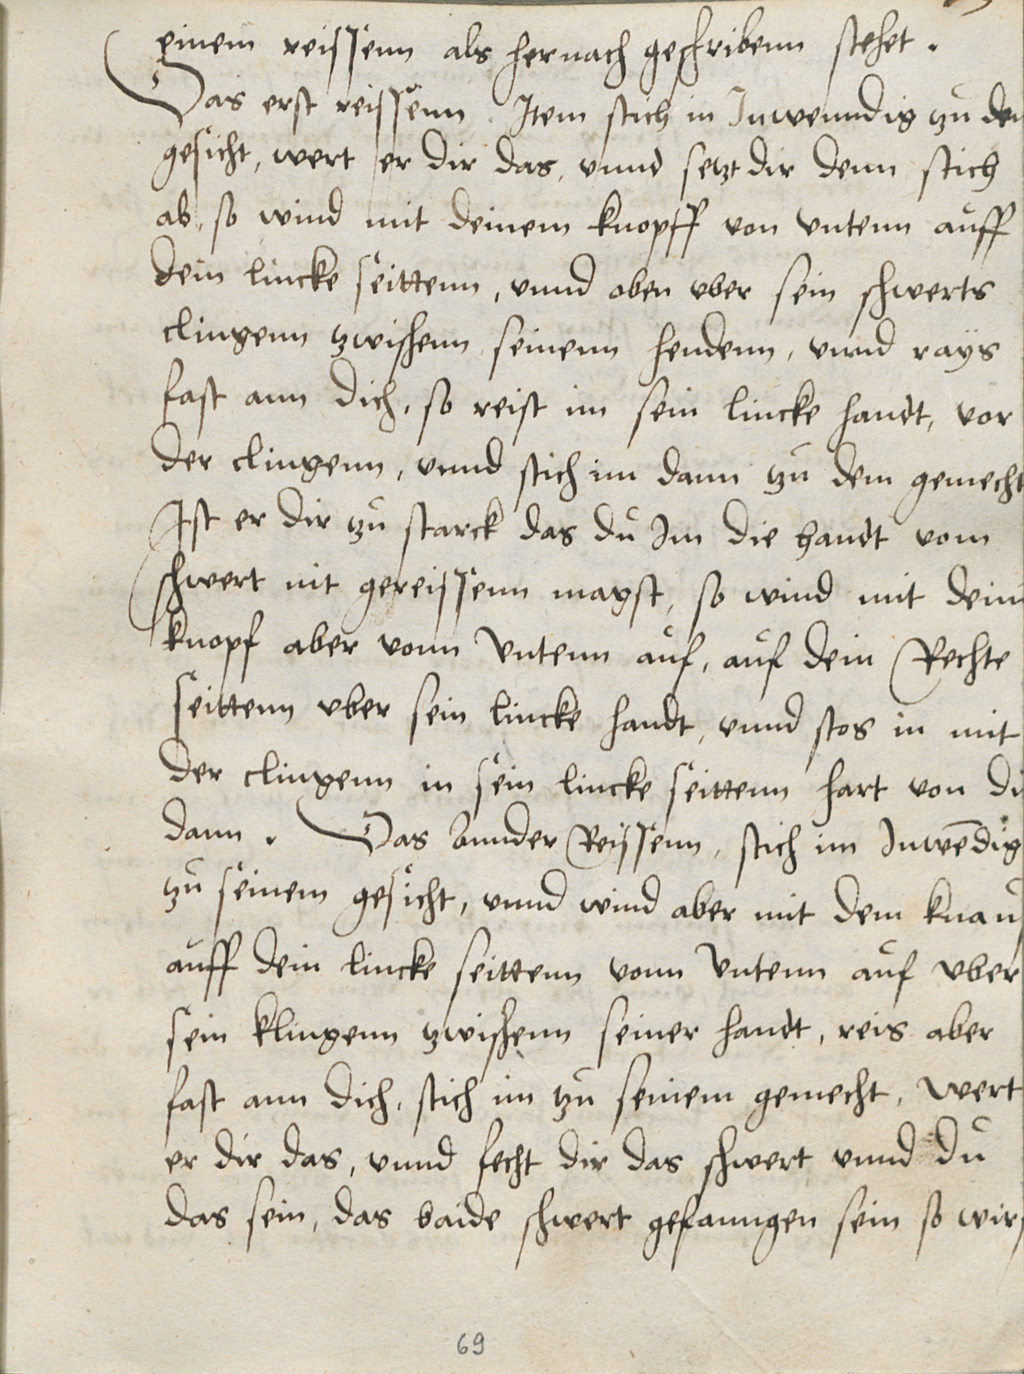 einem reissenn als hernach geschribenn stehet .
Das erst reissenn . Item stich in Inwenndig zu der
gesicht, wert er dir das, unnd setzt dir denn stich
ab, so wind mit deinem knopff von untenn auff
dein lincke seittenn, unnd oben uber sein schwerts
clingenn zwischenn seinenn hendenn, unnd rays
fast ann dich, so reist im sein lincke handt, vor
der clingenn, unnd stich im dann zu dem gemecht
Ist er dir zu starck das du Im die handt vom
schwert nit gereissenn magst, so wind mit dein
knopf aber vonn untenn auf, auf dein Rechte
seittenn uber sein lincke handt, unnd stos in mit
der clingenn in sein lincke seittenn hart von di
dann . Das annder Reissenn, stich im Inwēdig
zu seinem gesicht, unnd wind aber mit dem knau
auff dein lincke seittenn vonn untenn auf uber
sein klingenn zwischenn seiner handt, reis aber
fast ann dich, stich im zu seinem gemecht, wert
er dir das, unnd fecht dir das schwert unnd du
das sein, das baide schwert gefanngen sein so wirf
69